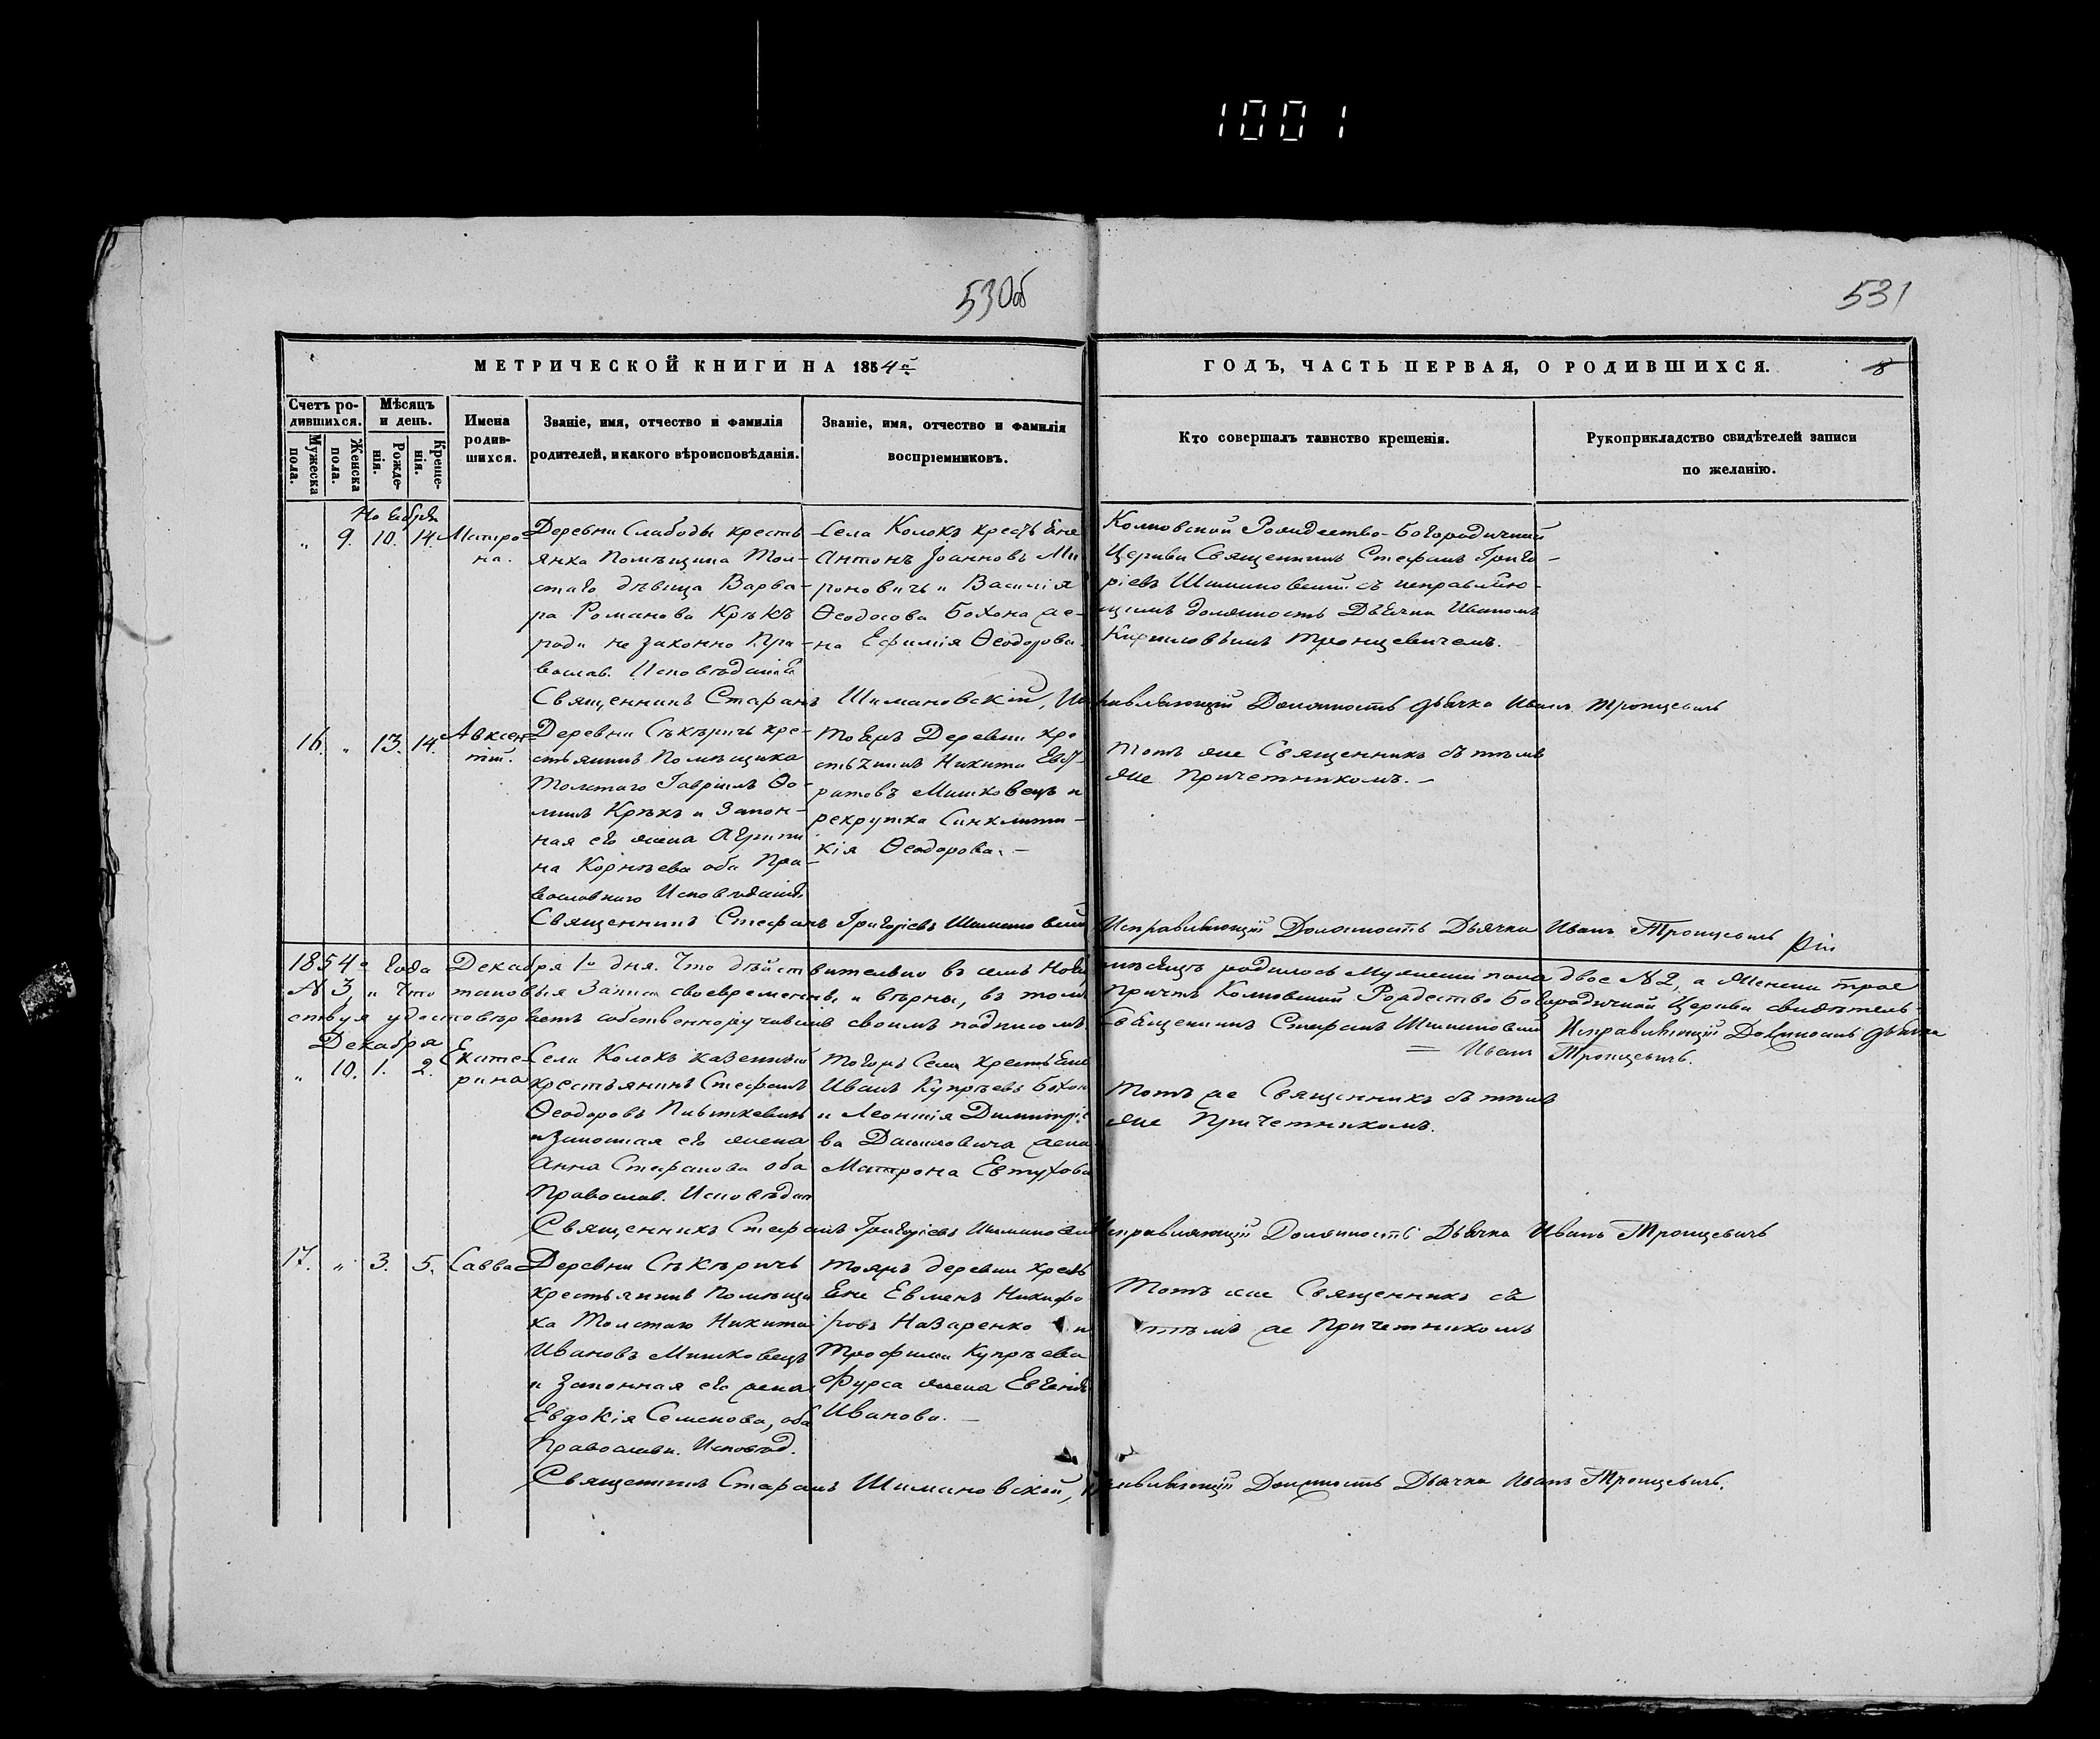 1001
530об
531
МЕТРИЧЕСКОЙ КНИГИ НА 1854й
ГОДЪ, ЧАСТЬ ПЕРВАЯ, О РОДИВШИХСЯ.
8
Счетъ ро-
дившихся.
Мужеска
пола.
Женска
пола.
Мѣсяцъ
и день.
Рожде-
нія.
Креще-
нія.
Имена
родив-
шихся.
Званіе, имя, отчество и фамилія
родителей, и какого вѣроисповѣданія.
Званіе, имя, отчество и фамилія
воспріемниковъ.
Кто совершалъ таинство крещенія.
Рукоприкладство свидѣтелей записи
по желанію.
Ноября
" 9. 10. 14.
Матро-
на.
Деревни Слабоды кресть
янка Помѣщика Тол-
стаго дѣвица Варва-
ра Романова Крѣкъ
роди не законно Пра-
вослав. Исповѣданія
Села Колокъ
Антонъ Іоанновъ Ми
роновичъ и Василія
Ѳеодосова Бохона же-
на Ефимія Ѳеодорова.
Рождество-Богородичной
Церкви Священникъ Стефанъ Григо-
ріевъ съ исправляю-
щимъ должность Дьячка Иваномъ
Кириловымъ Тронцевичемъ.
Священникъ Стефанъ Шимановскій, Исправляющій Должность дьячка Иванъ Тронцевичъ
16. " 13. 14.
Авксен
тій.
Деревни Сѣкѣричъ кре-
стьянинъ Помѣщика
Толстаго Гавріилъ Ѳо-
минъ Крѣкъ и Закон-
ная его жена Агрипи
на Корнѣева оба Пра-
вославнаго Исповѣданія.
Тоежъ Деревни кре
стьянинъ Никита
Мишковецъ и
рекрутка Синклити-
кія Ѳеодорова. -
Тотъ же Священникъ съ тѣмъ
же Причетникомъ. -
Священникъ Стефанъ Григоріевъ Исправляющій Должность Дьячка Иванъ Тронцевичъ
1854го Года Декабря 1го дня. Что дѣйствительно въ семъ мѣсяцѣ родилось Мужеска пола двое N 2, а Женска трое
N 3, и что таковыя Записи своевременны, и вѣрны, въ томъ Причтъ Рождество Богородичной Церкви свидѣтель-
ствуя удостовѣряетъ собственноручнымъ своимъ подписомъ Священникъ Стефанъ Исправляющій Должность дьячка
= Иванъ Тронцевичъ.
Декабря
" 10. 1. 2.
Екате-
рина
Села Колокъ казенный
крестьянинъ Стефанъ
Ѳеодоровъ
и Законная его жена
Анна Стефанова оба
Православ. Исповѣдан
Тогожъ Села
Иванъ Купрѣевъ Бохон
и Леонтія Димитріе
ва Даниловича жена
Матрона Евтухова
Тотъ же Священникъ съ тѣмъ
же Причетникомъ.
Священникъ Стефанъ Григоріевъ Исправляющій Должность Дьячка Иванъ Тронцевичъ
17. " 3. 5.
Савва
Деревни Сѣкѣричъ
крестьянинъ Помѣщи
ка Толстаго Никита
Ивановъ Мишковецъ
и Законная его жена
Евдокія Семенова, оба
Православн. Исповѣд.
Тояжъ деревни
Евменъ Никифо
ровъ Назаренко и
Трофима Купрѣева
Фурса жена Евгенія
Иванова. -
Тотъ же Священникъ съ
тѣмъ же Причетникомъ
Священникъ Стефанъ Шимановскій, Исправляющій Должность Дьячка Иванъ Тронцевичъ.